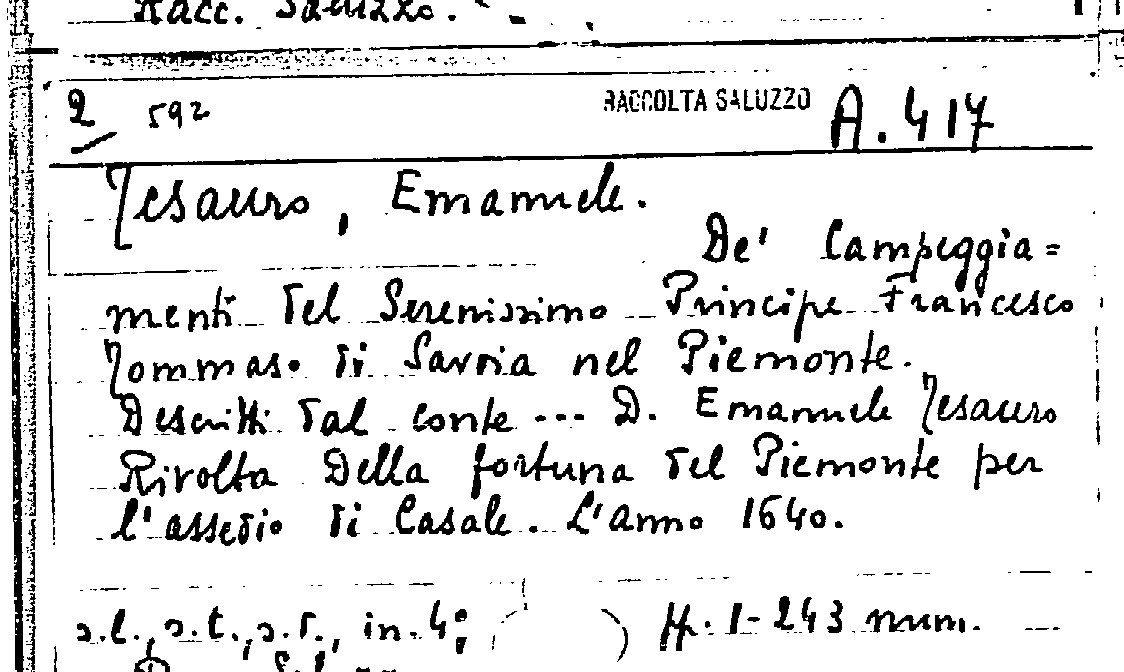 Racc. Saluzzo.
2 592 RACCOLTA SALUZZO A. 417
Tesauro, Emanuele.
De' Campeggia=
menti del Serenissimo Principe Francesco
Tommaso di Savoia nel Piemonte.
Descritti dal conte --- D. Emanuele Tesauro
Rivolta della fortuna del Piemonte per
l'assedio di Casale. L'anno 1640.
s.l., s.t., s.d., in.4: ( ) ff. 1-243 num.